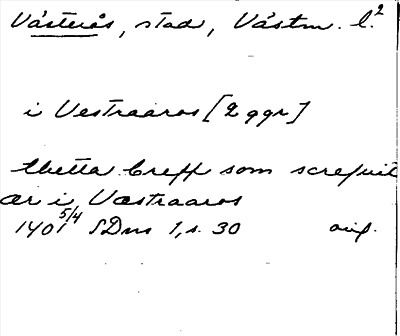 Västerås, stad, Västm. l. 2
i Vestraaros [2 ggr]
thetta breff som screfuit
ær i Væstraaros
1401 5/4 SDns 1, s. 30 orig.